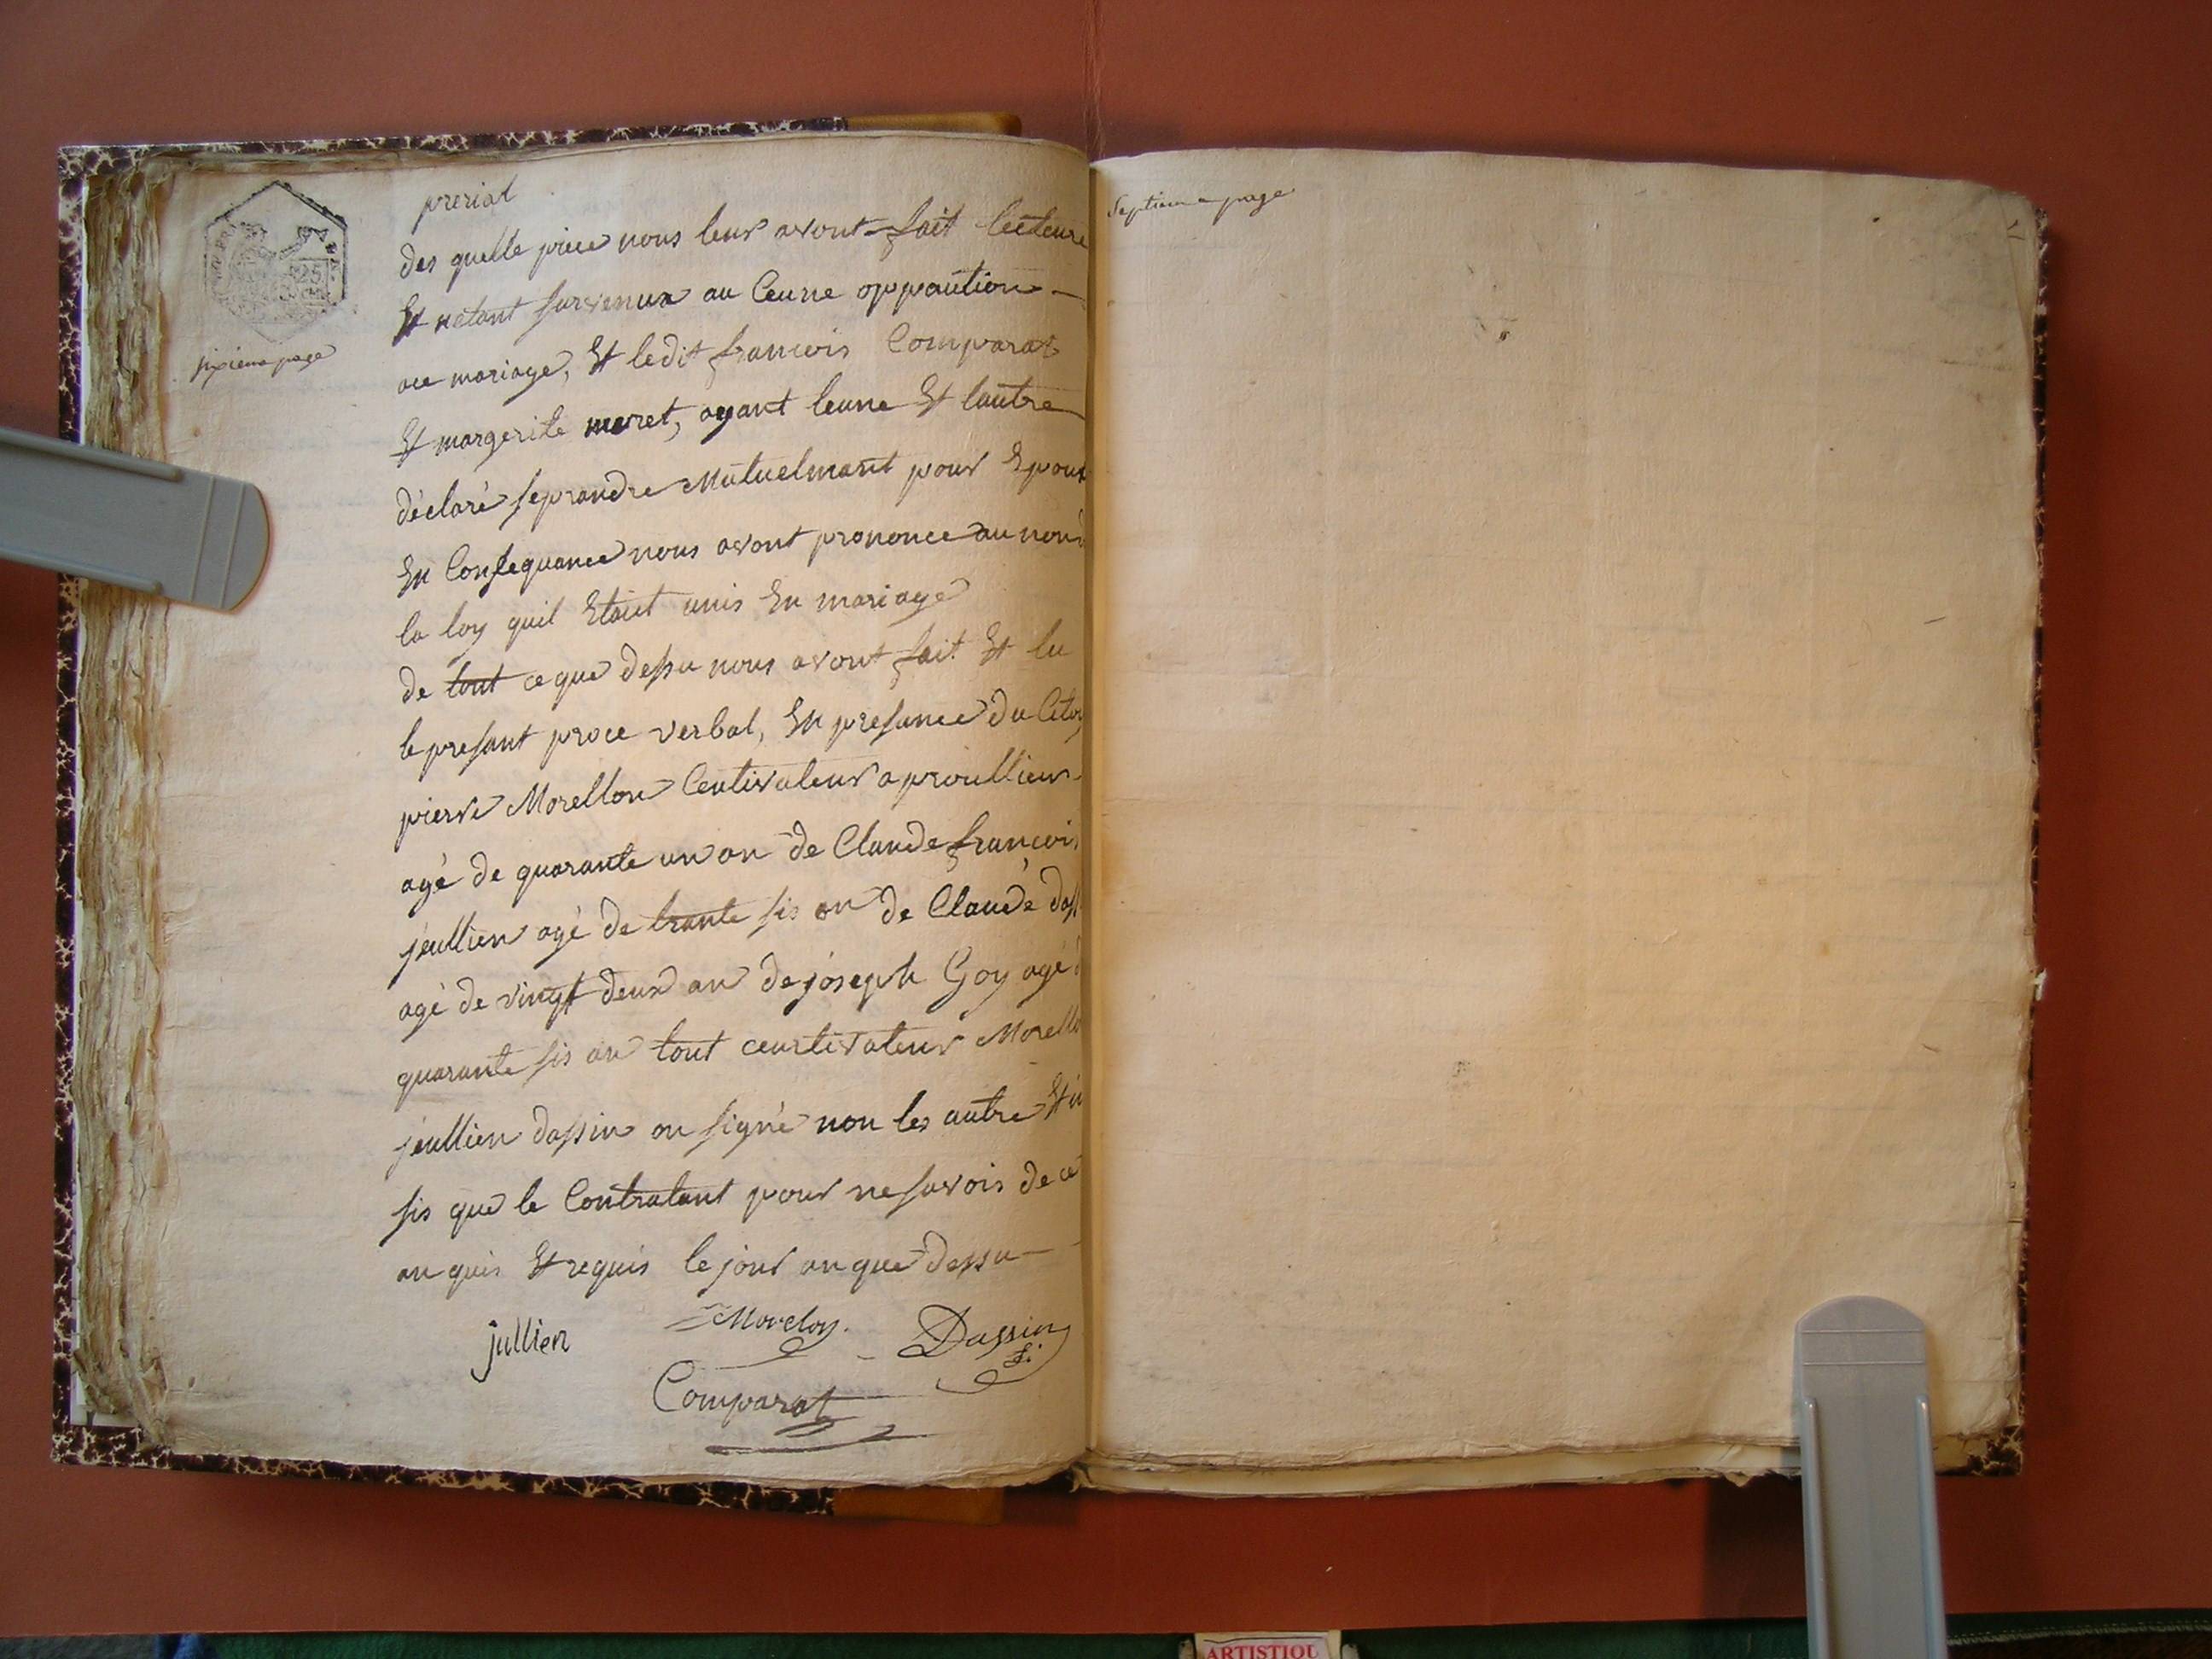 prerial
des quelle piece nous leur avont fait lecteure
Et netant survenux au Ceune oppaution
ace mariage, Et ledit francois Comparat
Et margerite moret, ayant leune Et lautre
déclaré seprandre Mutuelmant pour Epoux
En Consequance nous avont prononce au nom d
la loy quil Etaiet unis En mariage
de tout ceque dessu nous avont fait Et lu
le presant proce verbal, En presance du Citoy
pierre Morellon Ceutivateur a proullieux
agé de quarante un an de Claude francois
jeullien agé de trante sis an de Claude dass
agé de vingt deux an de joseph Goy agé d
quarante sis an tout ceurtivateur Morello
jeullien dassin on signé non les autre Et in
sis que le Contratant pour ne savois de ce
an quis Et requis le jour an que dessu
jullien Morelon Dassin fi
Comparat
sixiema page
25
Septiem a page
ARTISTIQU